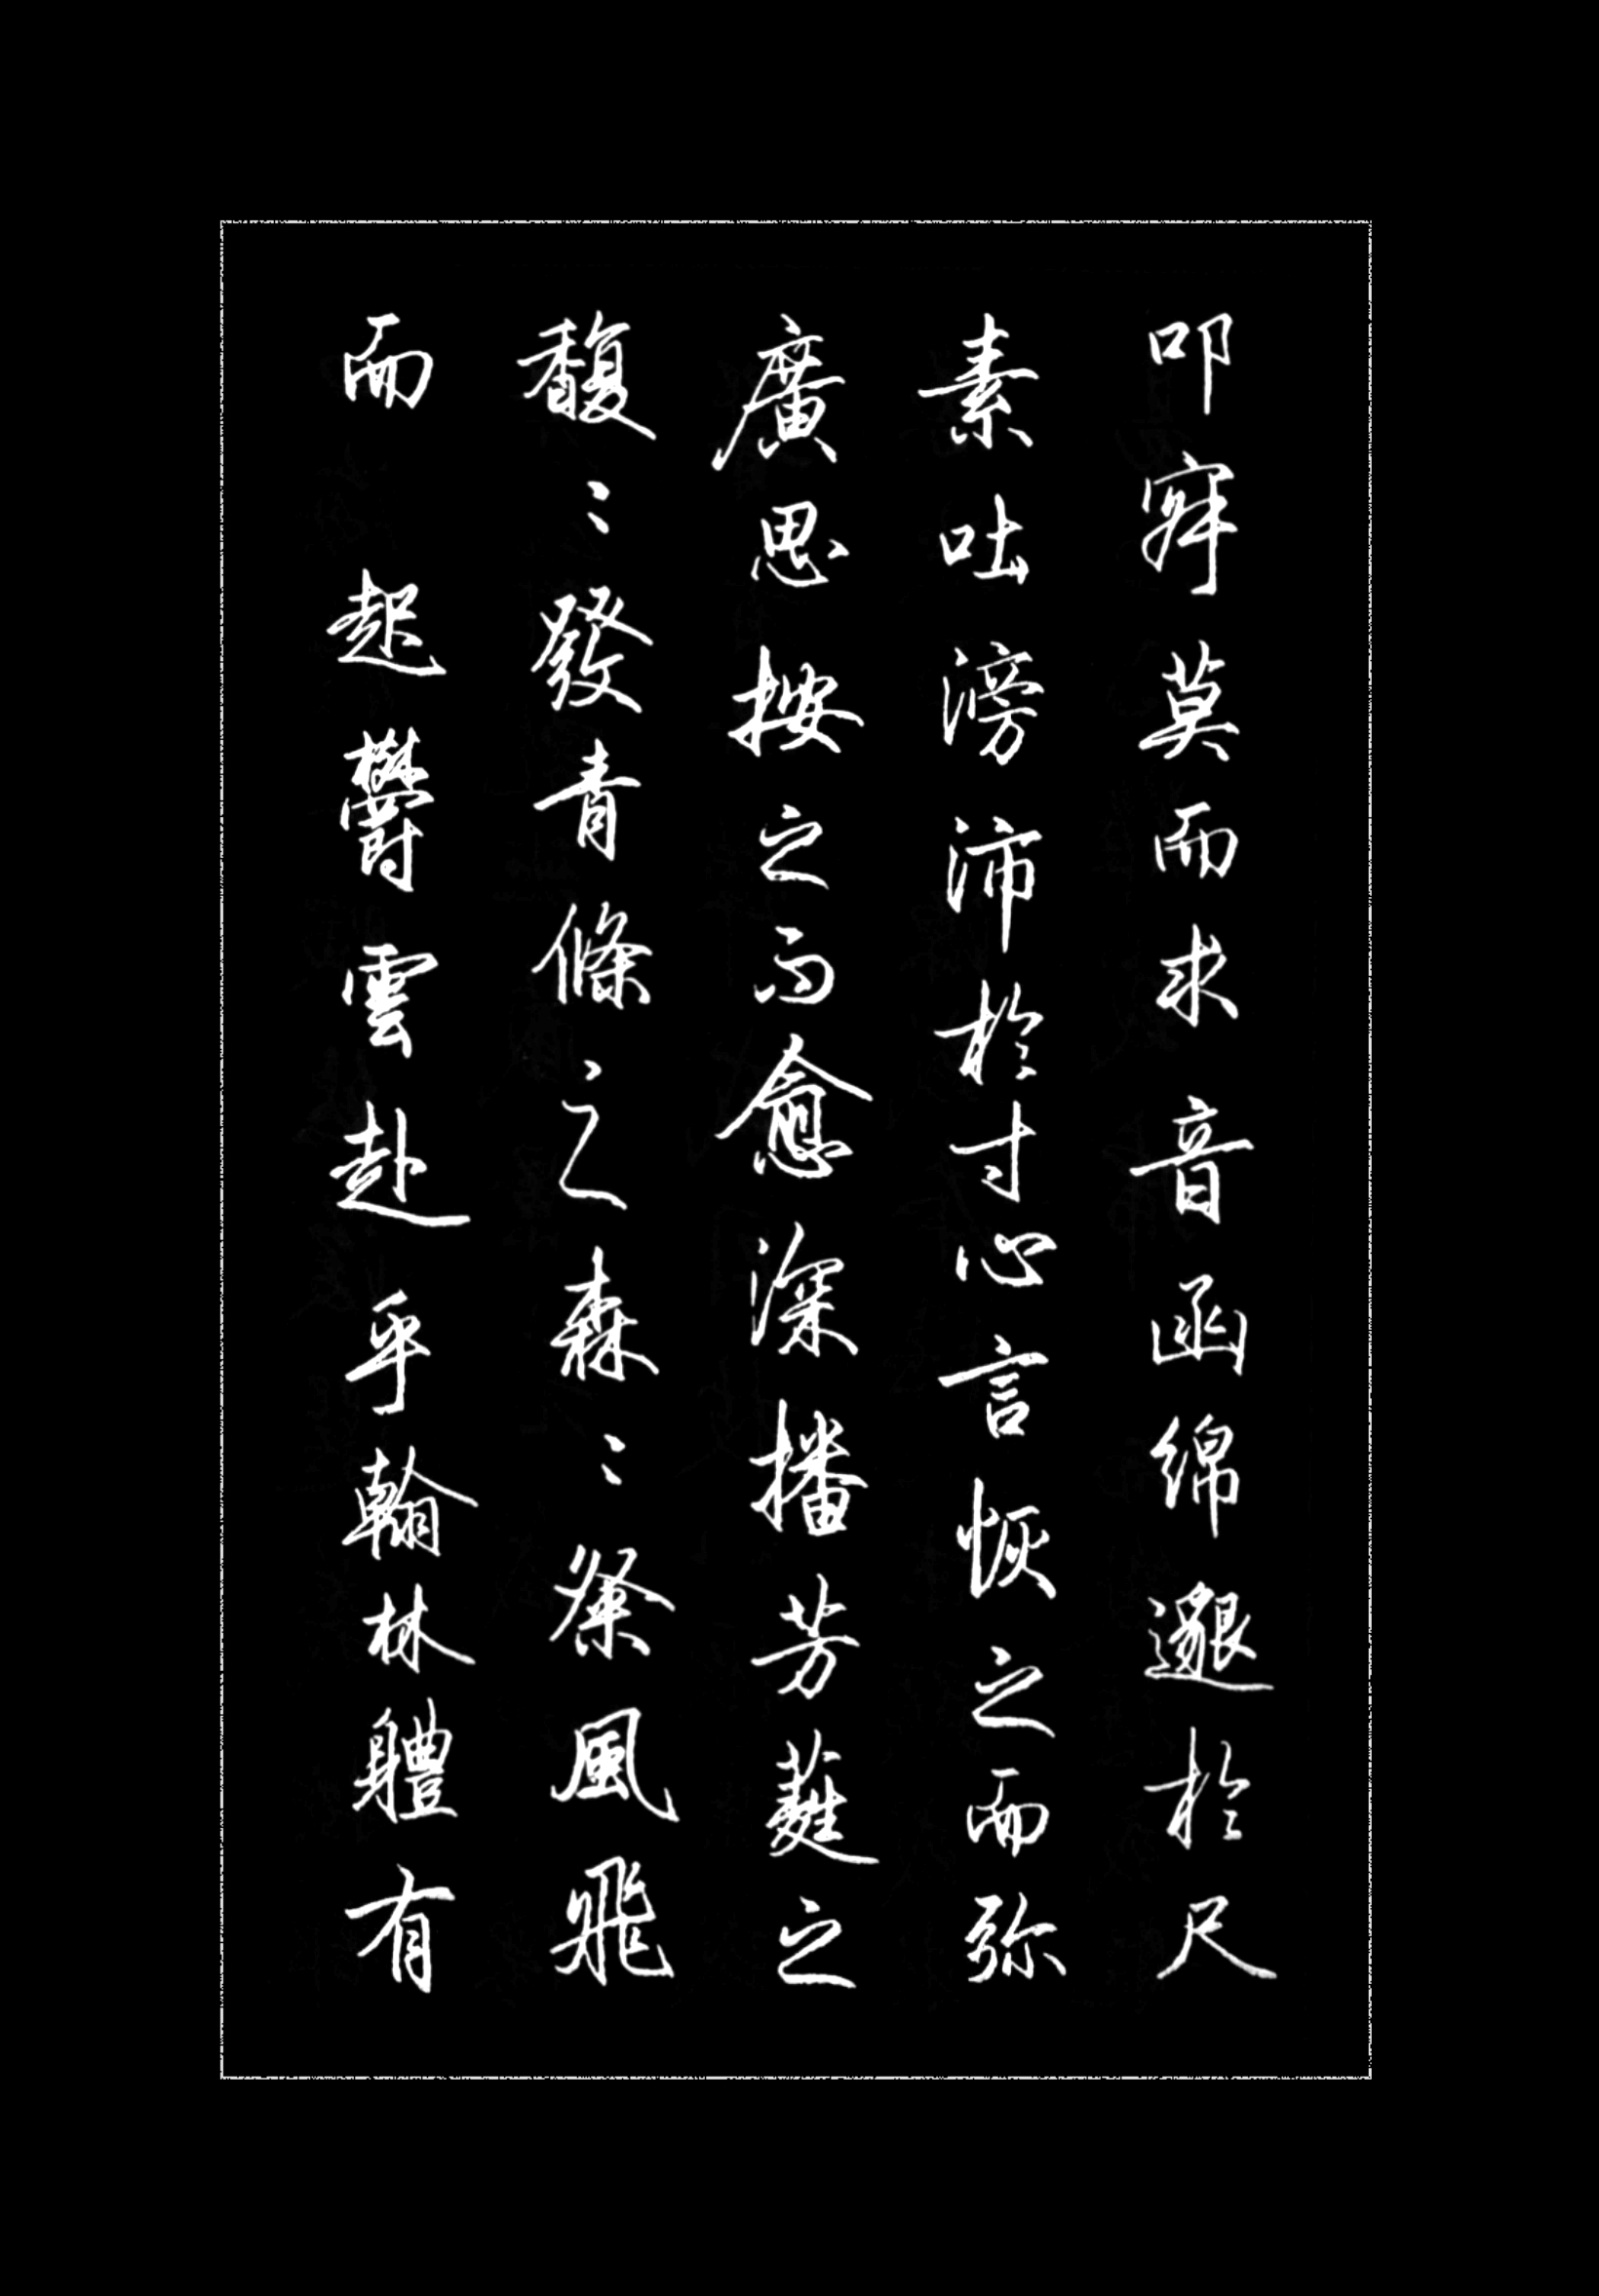 叩寂莫而求音函綿邈於尺
素吐滂沛於寸心言恢之而弥
廣思按之而愈深播芳蕤之
馥〻發青條之森〻粲風飛
而起欝雲赴乎翰林軆有